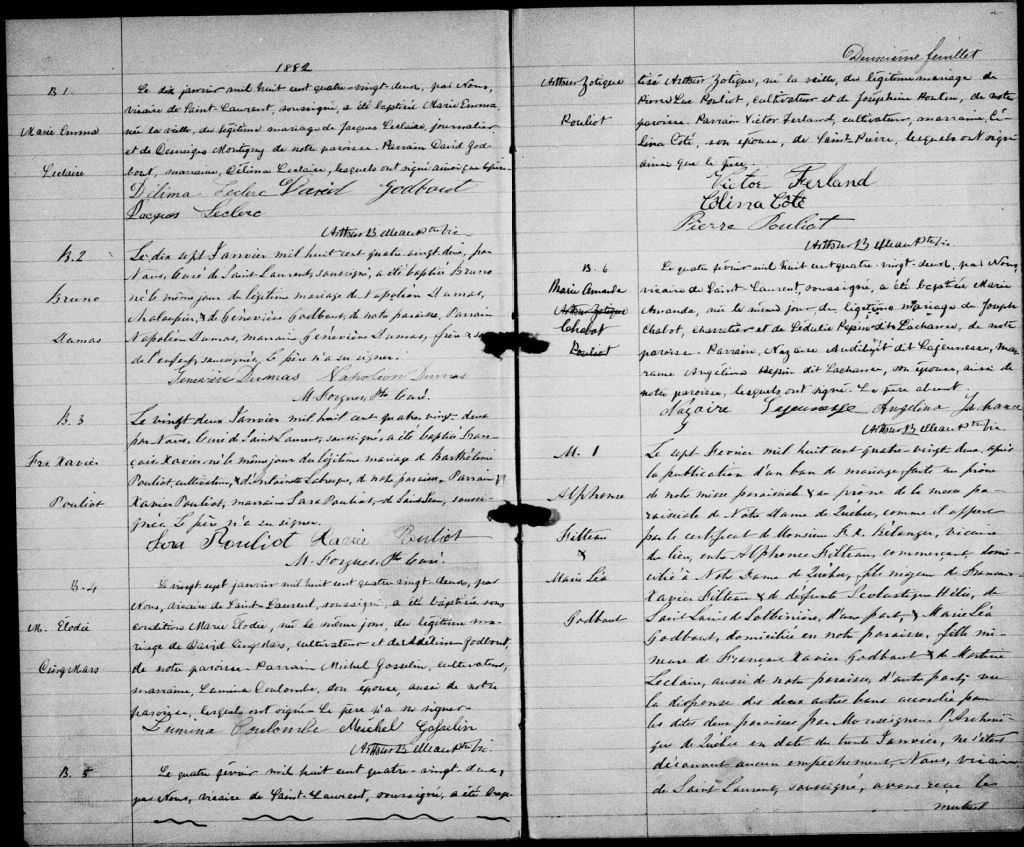 1882
B 1.
Marie Emma
Leclaire
Le dix janvier mil huit cent quatre-vingt-deux, par Nous,
vicaire de Saint-Laurent, soussigné, a été baptisée Marie Emma,
née la veille, du légitime mariage de Jacques Leclaire, journalier
et de Montigny de notre paroisse. Parrain David God
bout, marraine, Délima Leclaire, lesquels ont signé ainsi que le père.
Délima Leclerc David Godbout
Jacques Leclerc
Arthur Belleau Ptre Vic
B. 2
Bruno
Dumas
Le dix sept Janvier mil huit cent quatre vingt deux, par
Nous, Curé de Saint-Laurent, soussigné, a été baptisé Bruno
né le même jour du légitime mariage de Napoléon Dumas,
& de Geneviève Godbout, de notre paroisse, Parrain
Napoléon Dumas, marraine Geneviève Dumas, frère & sœur
de l'enfant, soussignés, Le père n'a su signer.
Geneviève Dumas Napoléon Dumas
M. Forgues, Ptre Curé.
B. 3
Frs Xavier
Pouliot
Le vingt deux Janvier mil huit cent quatre vingt deux
par Nous, Curé de Saint Laurent, soussigné, a été baptisé Fran
çois Xavier né le même jour du légitime mariage de Barthélemi
Pouliot, cultivateur, & d'Antoinette de notre paroisse. Parrain
Xavier Pouliot, marraine Sara Pouliot, de Saint Jean, soussi-
gnés. Le père n'a su signer.
Sara Pouliot Xavier Pouliot
M. Forgues, Ptre Curé.
B. 4
M. Elodie
Cinq-Mars
Le vingt sept janvier mil huit cent quatre vingt-deux, par
Nous, vicaire de Saint-Laurent, soussigné, a été baptisée sous
condition Marie Elodie, née le même jour, du légitime ma-
riage de David Cinq Mars, cultivateur et de Adeline Godbout,
de notre paroisse. Parrain Michel Gosselin, cultivateur,
marraine, Lumina Coulombe, son épouse, aussi de notre
paroisse, lesquels ont signé. Le père n'a su signer.
Lumina Coulombe Michel Gosselin
Arthur Belleau Ptre Vic.
B. 5
Le quatre février mil huit cent quatre-vingt-deux,
par Nous, vicaire de Saint-Laurent, soussigné, a été bap-
Deuxième feuillet
Arthur Zotique
Pouliot
tisé Arthur Zotique, né la veille, du légitime mariage de
Pierre Luc Pouliot, cultivateur et de Joséphine Poulin, de notre
paroisse. Parrain Victor Ferland, cultivateur, marraine, Cé-
lina Coté, son épouse, de Saint-Pierre, lesquels ont signé
ainsi que le père.
Victor Ferland
Célina Coté
Pierre Pouliot
Arthur Belleau Ptre Vic.
B. 6
Marie Amanda
Arthur Zotique
Chabot
Pouliot
Le quatre février mil huit cent quatre-vingt-deux, par Nous,
vicaire de Saint-Laurent, soussigné, a été baptisée Marie
Amanda, née le même jour, du légitime mariage de Joseph
Chabot, charretier et de Pépin dit Lachance, de notre
paroisse. Parrain, Nazaire Audibert dit Lajeunesse, mar
raine Angélina Pépin dit Lachance, son épouse, aussi de
notre paroisse, lesquels ont signé. Le père absent.
Nazaire Lajeunesse Angélina Lachance
Arthur Belleau Ptre Vic
M. 1
Alphonse
Filteau
&
Marie Léa
Godbout
Le sept Février mil huit cent quatre-vingt deux, après
la publication d'un ban de mariage faite au prône
de notre messe paroissiale & au prône de la messe pa-
roissiale de Notre Dame de Québec, comme il appert
par le certificat de Monsieur F. X. Bélanger, vicaire
du lieu, entre Alphonse Filteau, commerçant, domi-
cilié à Notre Dame de Québec, fils majeur de François
Xavier Filteau & de défunte Scolastique Hélie, de
Saint Louis de Lotbinière, d'une part, & Marie Léa
Godbout, domiciliée en notre paroisse, fille mi-
neure de François Xavier Godbout & de
Leclaire, aussi de notre paroisse, d'autre part, vu
la dispense des deux autres bans accordée pour
les dites deux paroisses par Monseigneur l'Archevê-
que de Québec en date du trente Janvier, ne s'étant
découvert aucun empêchement, Nous, vicaire
de Saint Laurent, soussigné, avons reçu le
mutuel